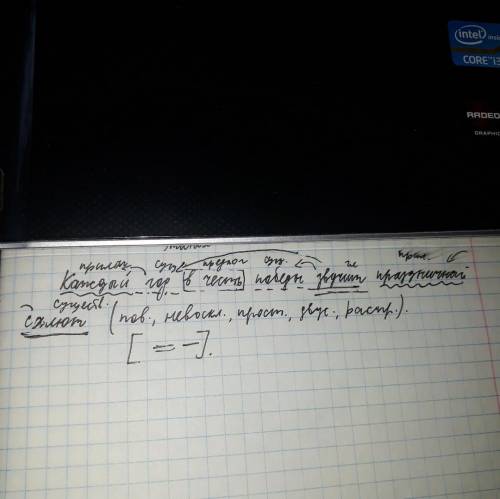 intel inside
CORE i3
RADEON
GRAPHICS
прилаг. сущ. предлог сущ. гл. прил.
Каждый год в честь победы звучит праздничный
существ.
салют (пов., невоскл., прост., двус., распр.).
[ = – ].